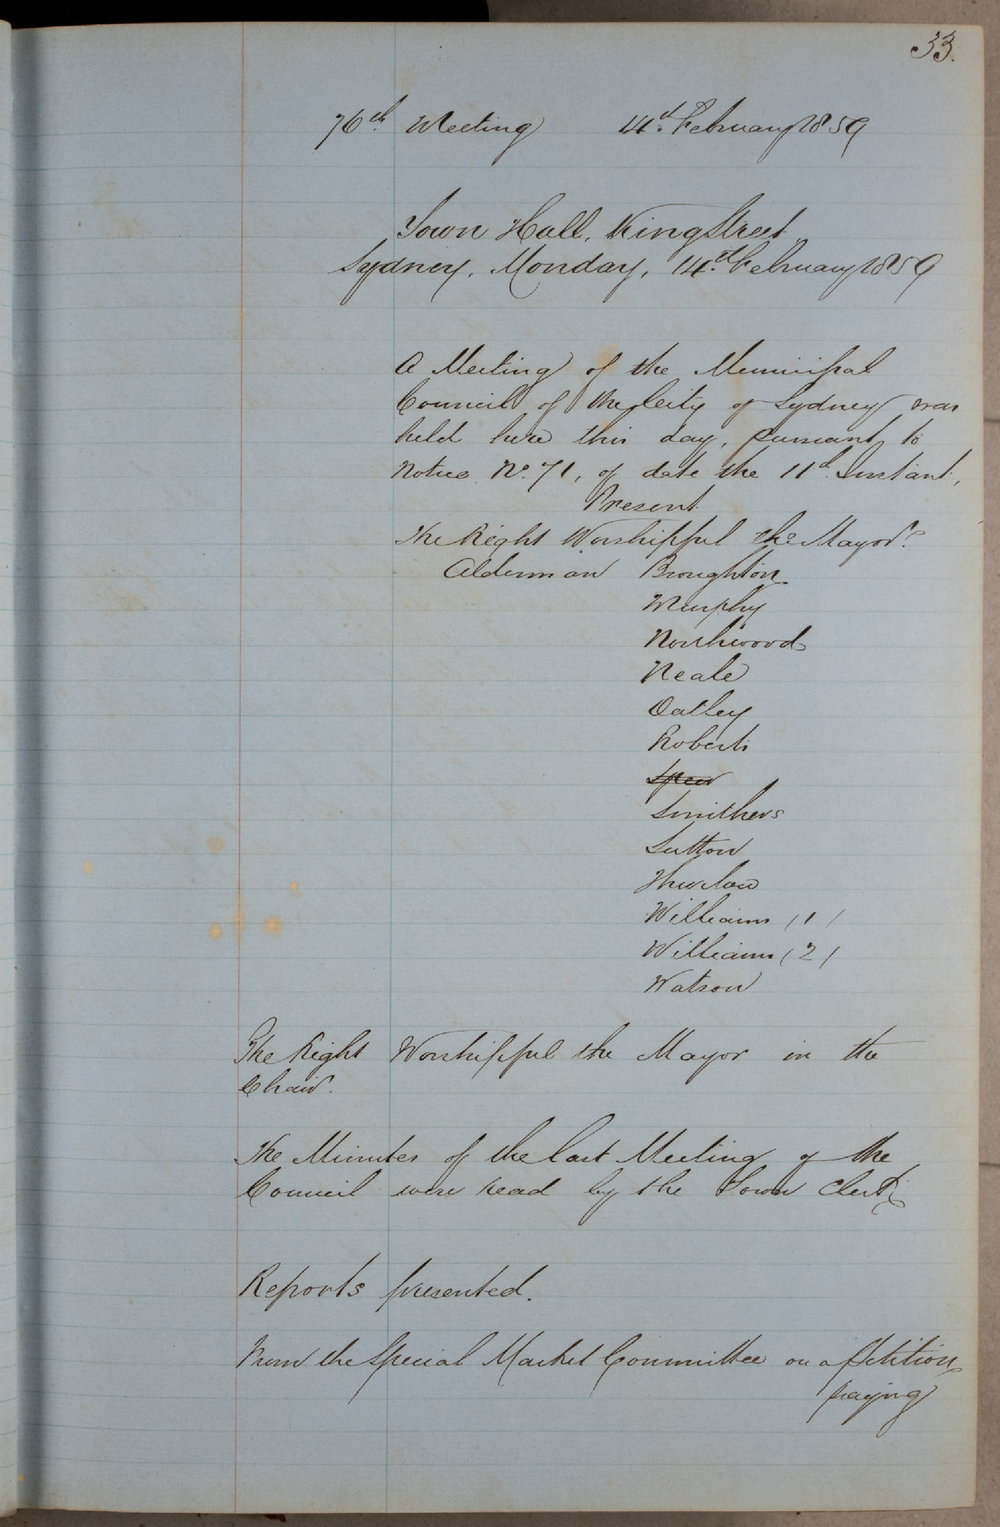 33.
76th Meeting 14th February 1859
Town Hall, King Street
Sydney, Monday, 14th February 1859
A Meeting of the Municipal
Council of the City of Sydney was
held here this day, pursuant to
Notice No. 71, of date the 11th Instant,
Present
The Right Worshipful the Mayor.
Alderman Broughton
Murphy
Northwood
Neale
Oatley
Roberts
Speer
Smithers
Sutton
Thurlow
Williams (1)
Williams (2)
Watson
The Right Worshipful the Mayor in the
Chair.
The Minutes of the last Meeting of the
Council were read by the Town Clerk,
Reports presented.
From the Special Market Committee on a Petition
praying